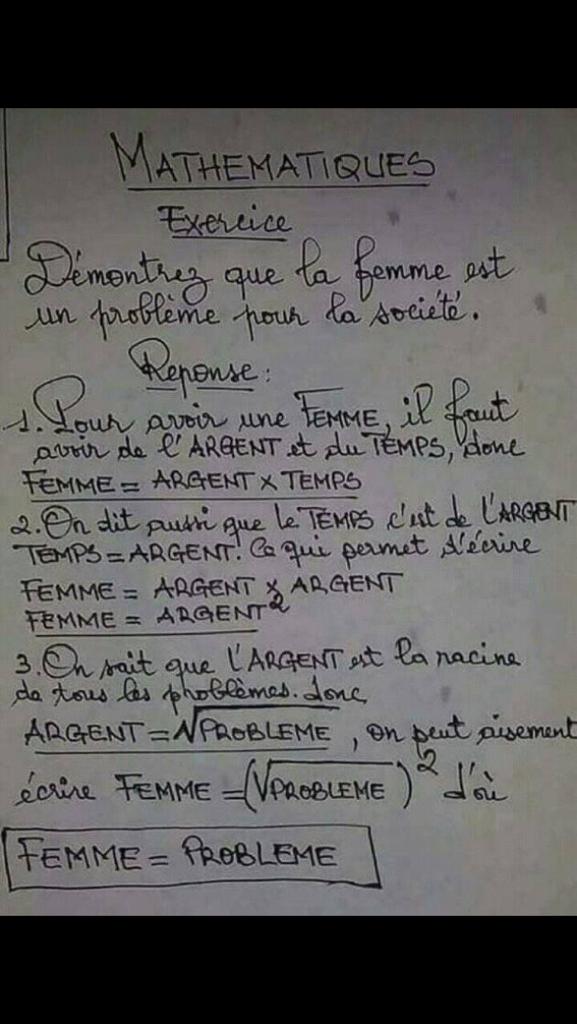 MATHEMATIQUES
Exercice
Démontrez que la femme est
un problème pour la société.
Reponse:
1. Pour avoir une FEMME, il faut
avoir de l'ARGENT et du TEMPS, donc
FEMME = ARGENT x TEMPS
2. On dit aussi que le TEMPS c'est de l'ARGENT
TEMPS = ARGENT. Ce qui permet d'écrire
FEMME = ARGENT x ARGENT
FEMME = ARGENT²
3. On sait que l'ARGENT est la racine
de tous les problèmes. donc
ARGENT = √PROBLEME, on peut aisement
écrire FEMME = (√PROBLEME)² d'où
FEMME = PROBLEME